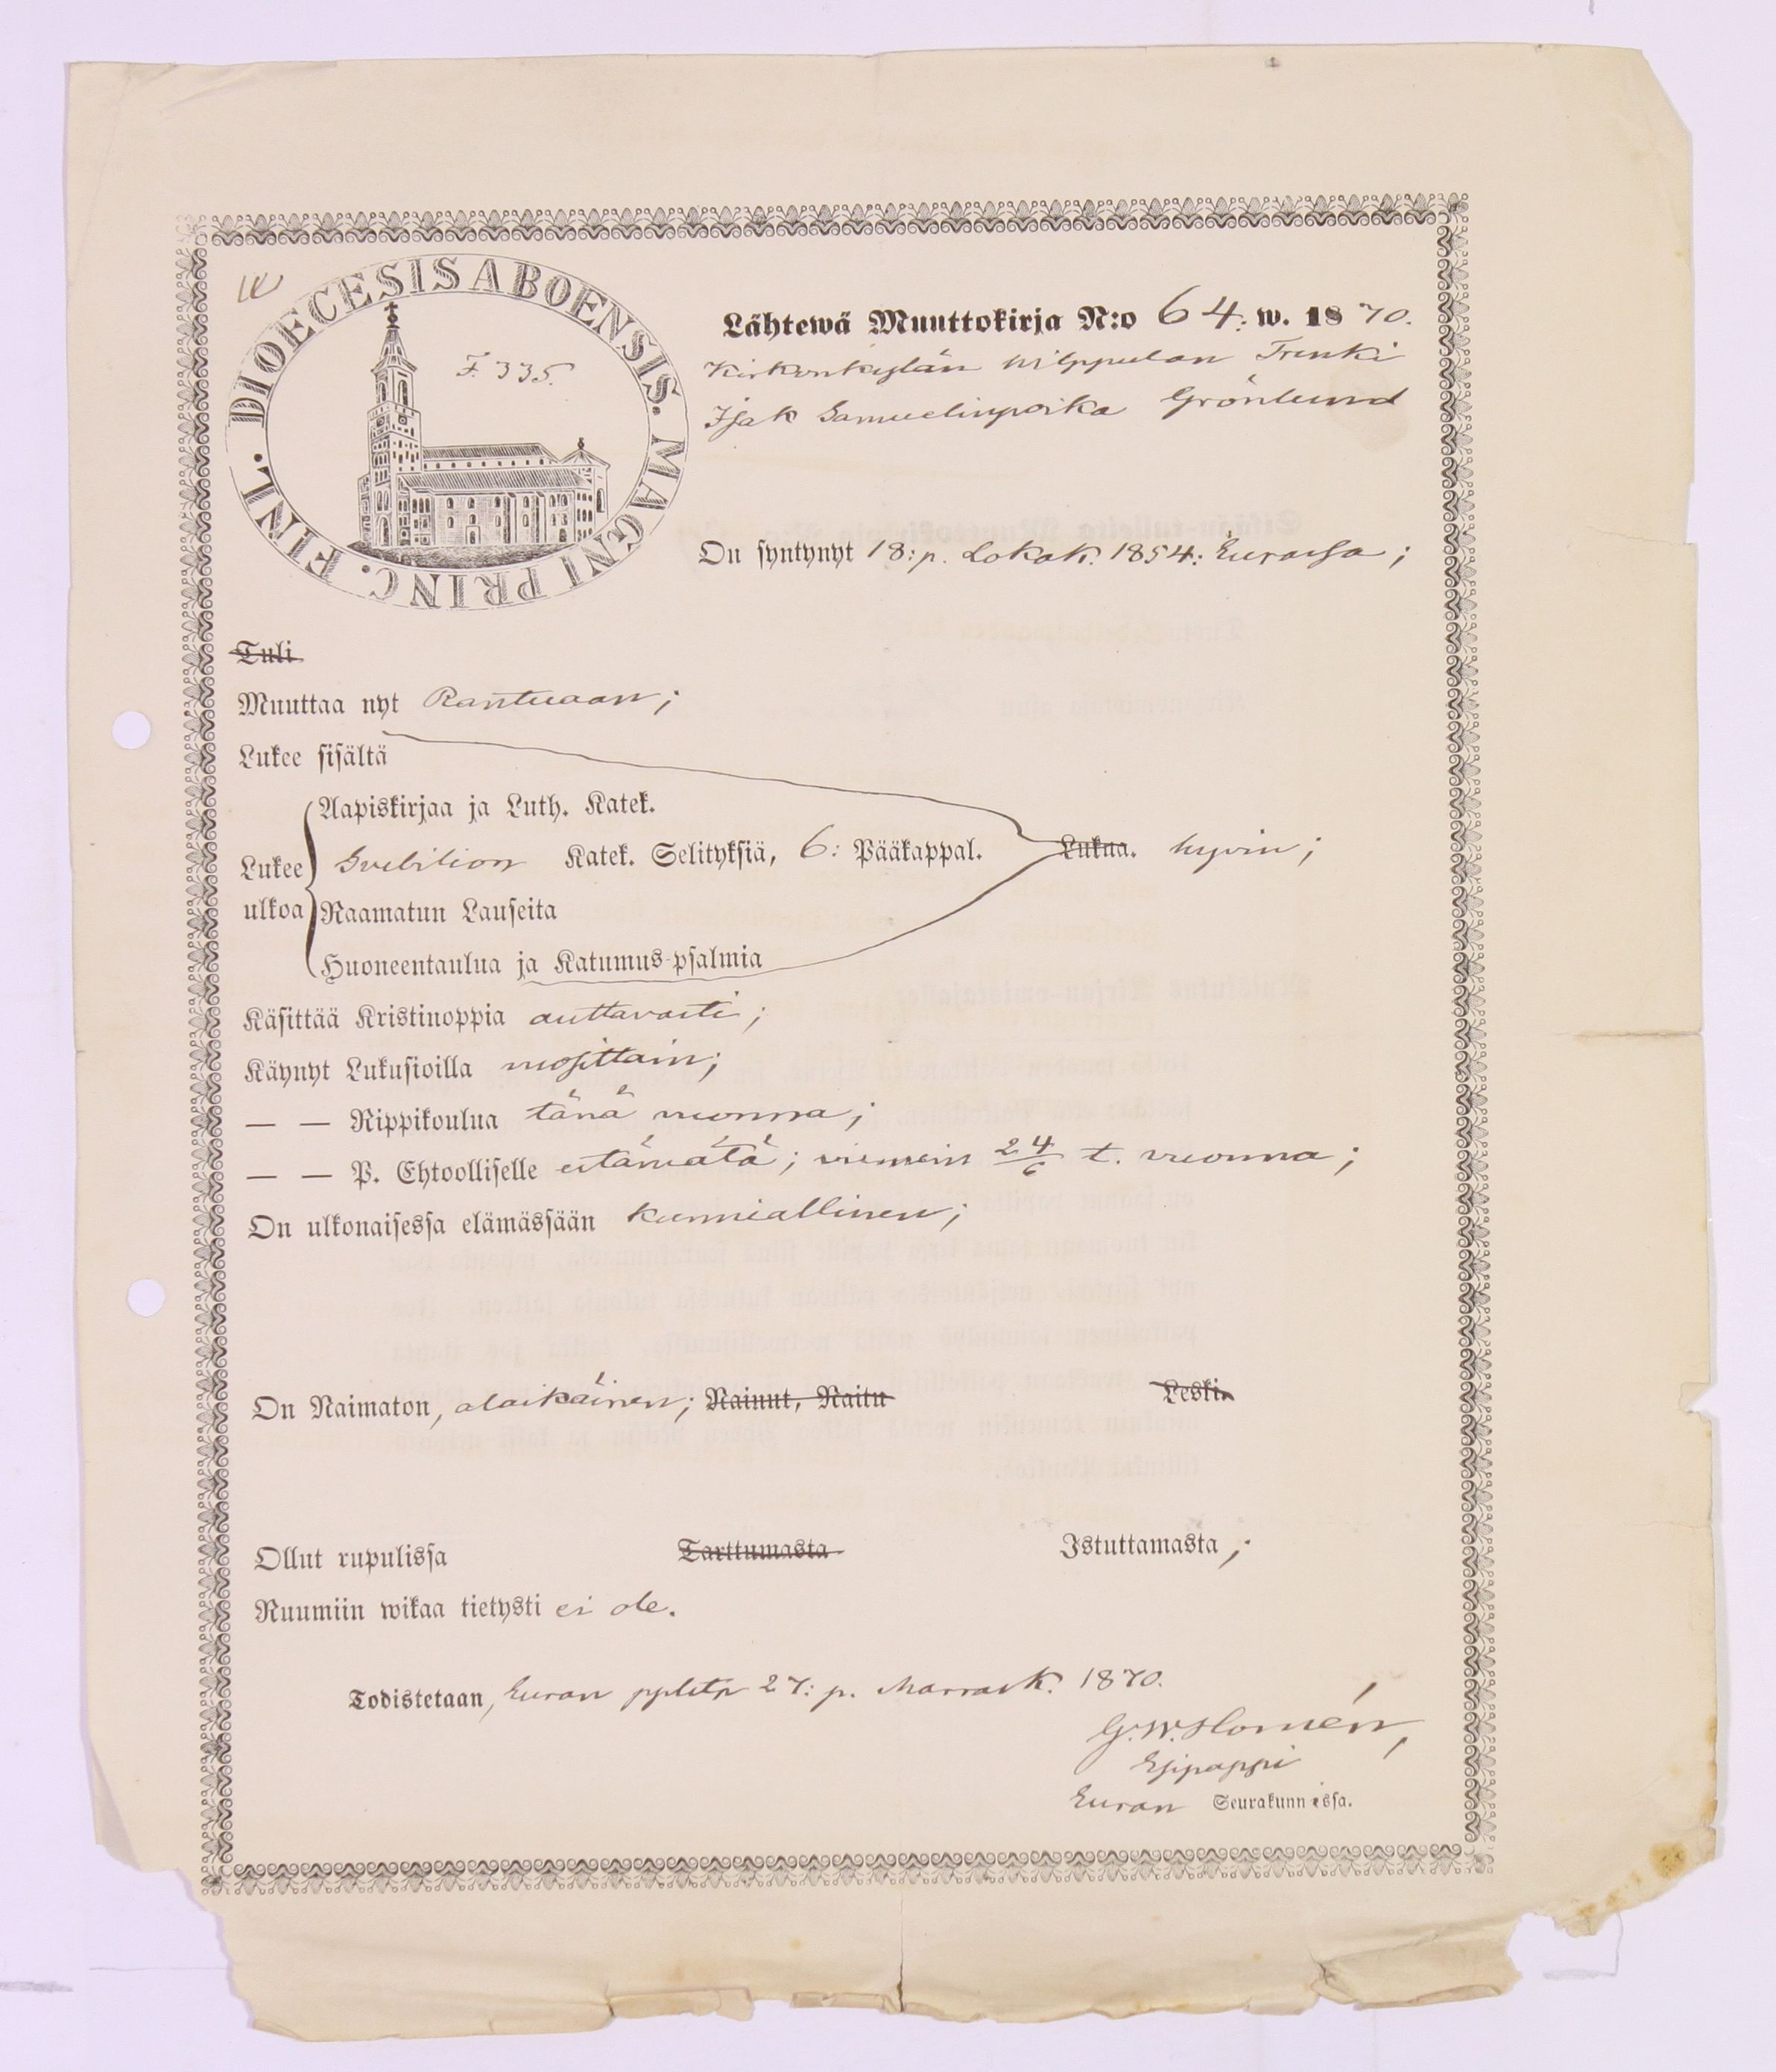 DIOECESIS ABOENSIS. MAGNI PRINC. FINL.
F. 335.
Lähtewä Muuttokirja N:o 64: w. 1870.
Kirkonkylän Wilppulan Trenki
Isak Samuelinpoika Grönlund
On syntynyt 18: p. Lokak. 1854: Eurassa;
Tuli
Muuttaa nyt Rantuaan;
Lukee sisältä
Aapiskirjaa ja Luth. Katek.
Lukee ulkoa Svebilion Katek. Selityksiä, 6: Pääkappal. Lukua. hyvin;
Raamatun Lauseita
Huoneentaulua ja Katumus-psalmia
Käsittää Kristinoppia auttavasti;
Käynyt Lukusioilla vuosittain;
— — Rippikoulua tänä vuonna;
— — P. Ehtoolliselle estämätä; viimein 24/6 t. vuonna;
On ulkonaisessa elämässään kunniallinen;
On Naimaton, alaikäinen; Nainut, Naitu Leski
Ollut rupulissa Tarttumasta Istuttamasta;
Ruumiin wikaa tietysti ei ole.
Todistetaan, Euran 27: p. Marrask. 1870.
G. W. Homén,
Esipappi
Euran Seurakunnissa.